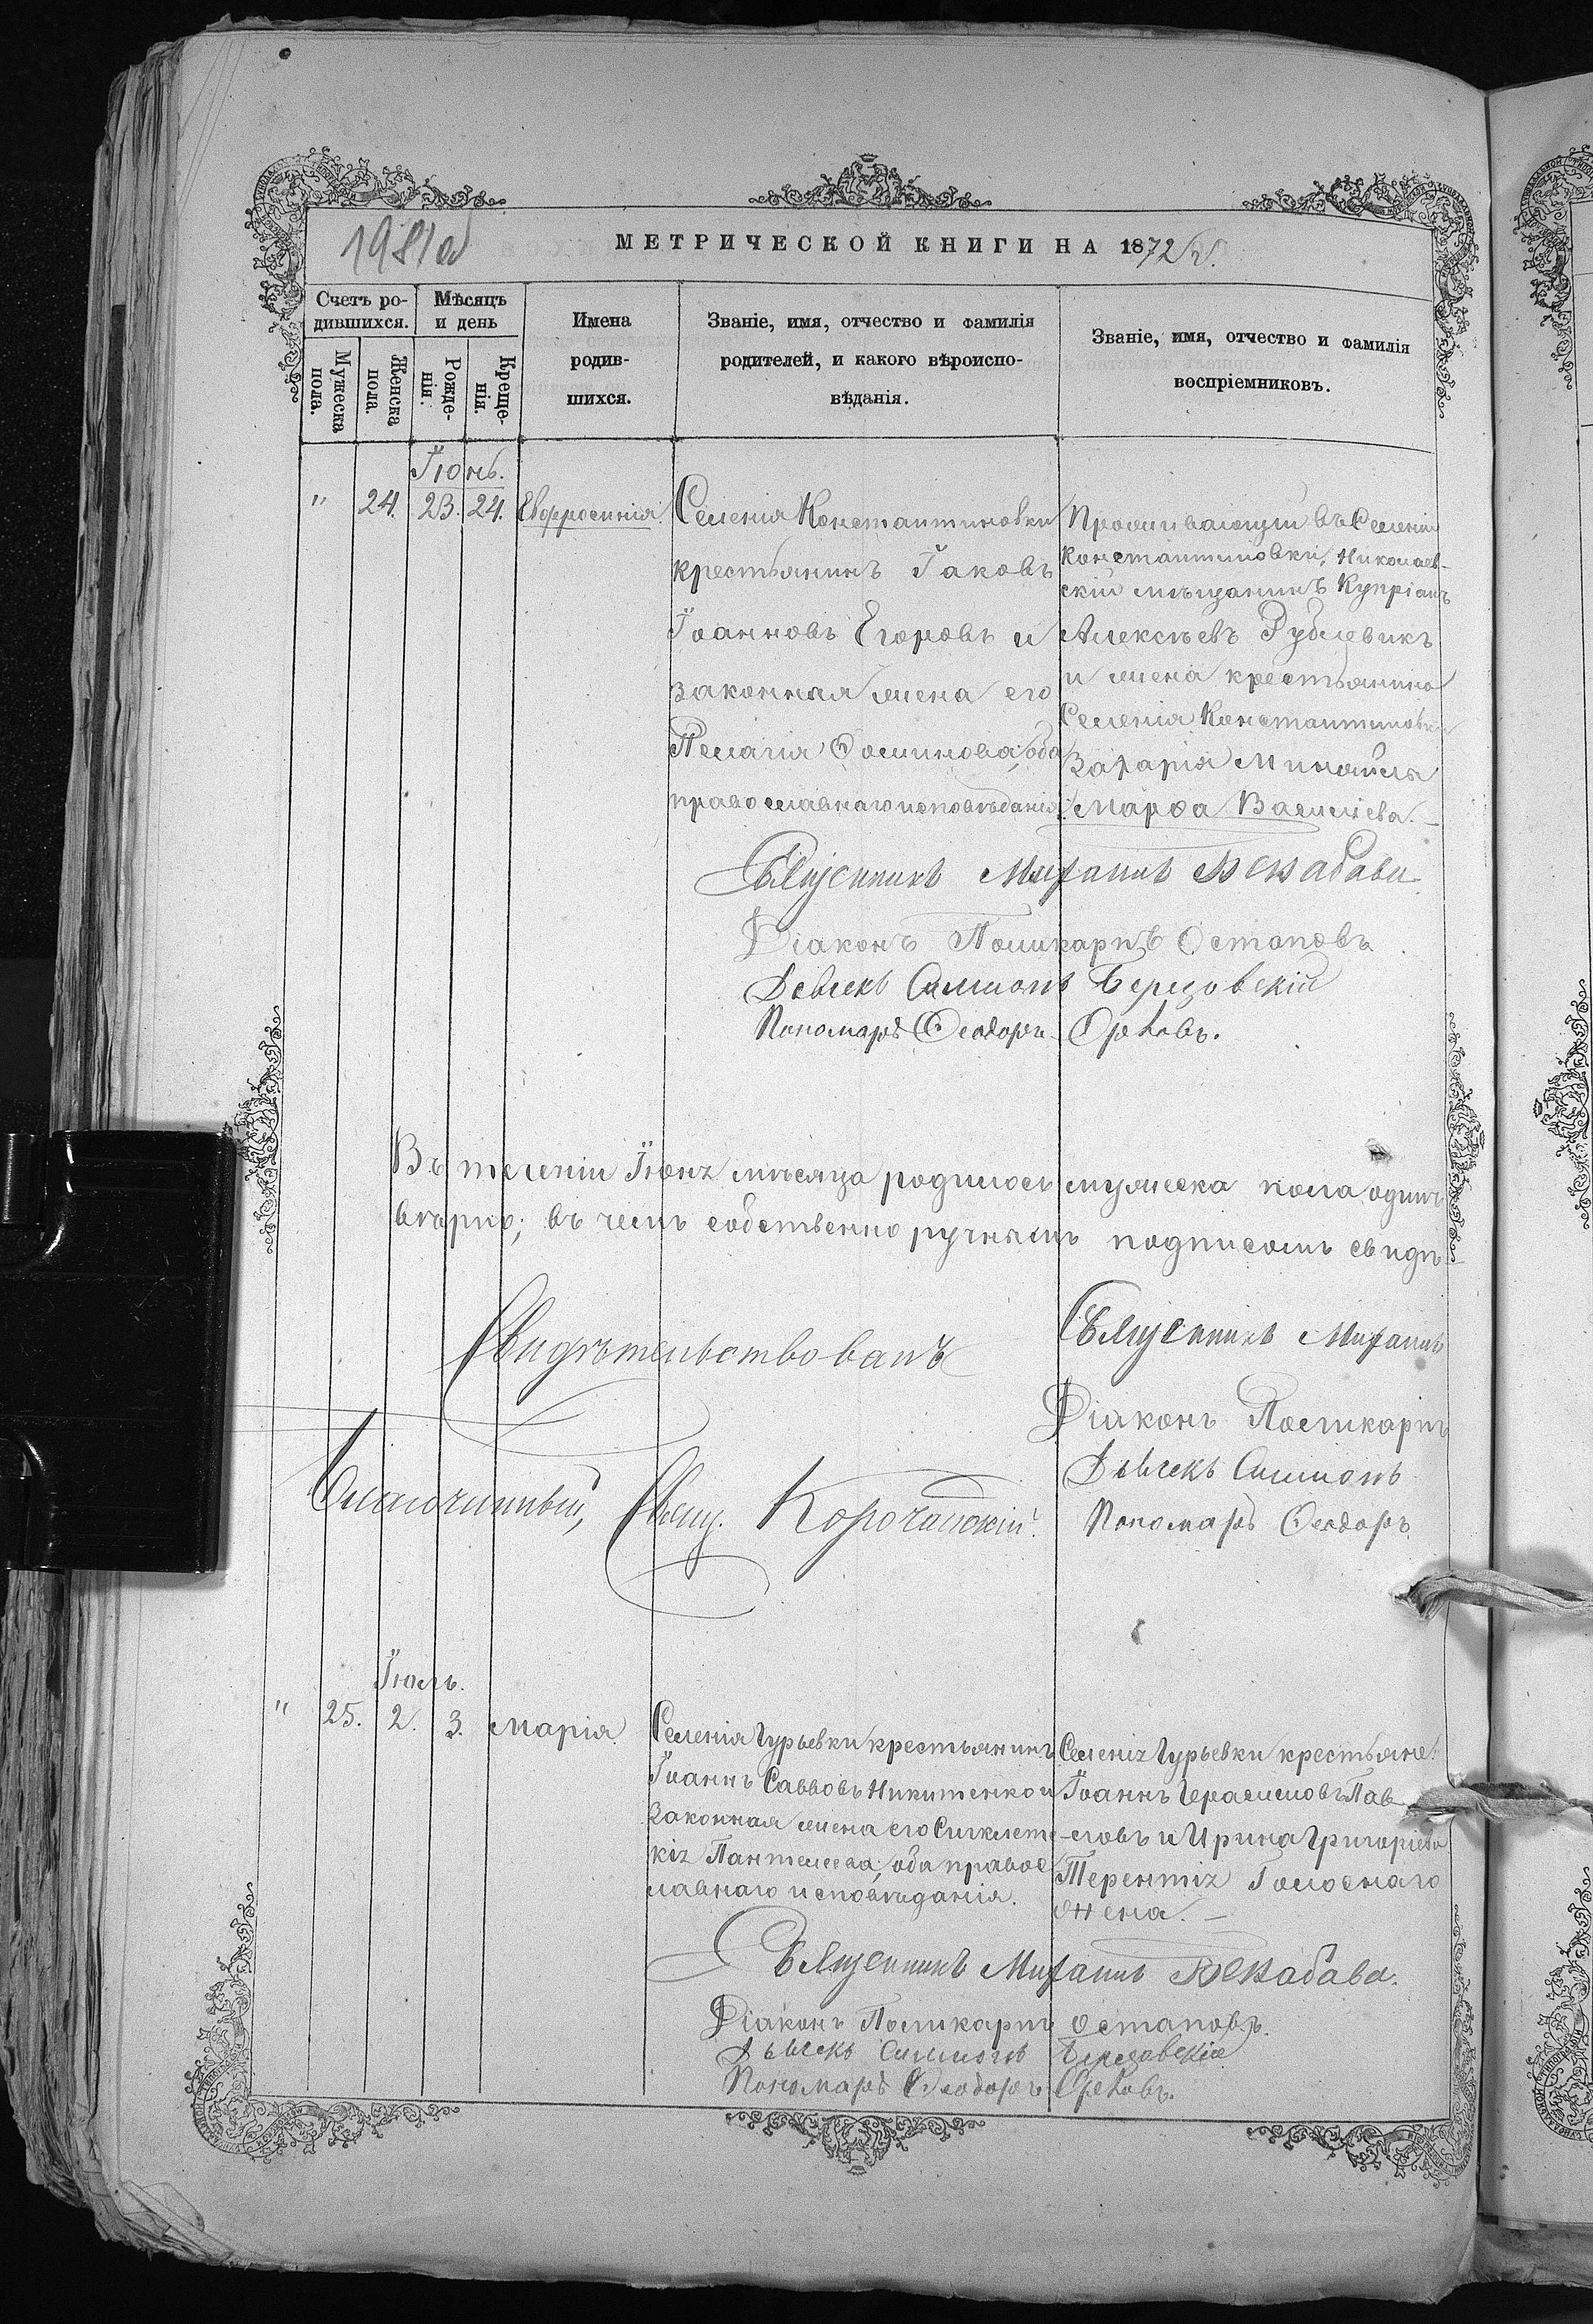 198 об
МЕТРИЧЕСКОЙ КНИГИ НА 1872 г.
Счетъ ро-
дившихся.
Мѣсяцъ
и день
Мужеска
пола.
Женска
пола.
Рожде-
нія.
Креще-
нія.
Имена
родив-
шихся.
Званіе, имя, отчество и фамилія
родителей, и какого вѣроиспо-
вѣданія.
Званіе, имя, отчество и фамилія
воспріемниковъ.
Іюнь.
" 24. 23. 24. Евфросинія.
Селенія Константиновки
крестьянинъ Іаковъ
Іоанновъ Егоровъ и
законная жена его
Пелагія Фоминова, оба
православнаго исповѣданія.
Проживающій въ Селеніи
Константиновки, Николаев-
скій мѣщанинъ Купріанъ
Алексѣевъ Рублевикъ
и жена крестьянина
Селенія Константиновки
Захарія Минайла
Марфа Васильева.
Священникъ Михаилъ
Діаконъ Поликарпъ Остаповъ
Дьячекъ Симеонъ Березовскій
Пономарь Феодоръ Орловъ.
Въ теченіи Іюня мѣсяца родилось мужеска пола одинъ
вѣрно; въ чемъ собственно ручнымъ подписомъ свидѣ-
Свидѣтельствовалъ
Благочинный, Свящ. Корочанскій.
Священникъ Михаилъ
Діаконъ Поликарпъ
Дьячекъ Симеонъ
Пономарь Феодоръ
Іюль.
" 25. 2. 3. Марія.
Селенія Гурьевки крестьянинъ
Іоаннъ Савовъ Никитенко и
законная жена его Синклети-
кія Пантелеева; оба правос
лавнаго исповѣданія.
Селенія Гурьевки крестьяне:
Іоаннъ Герасимовъ Пав-
ловъ и Ирина Григоріева
Терентія Голоснаго
жена.
Священникъ Михаилъ
Діаконъ Поликарпъ Остаповъ.
Дьячекъ Симеонъ Березовскій
Пономарь Феодоръ Орловъ.